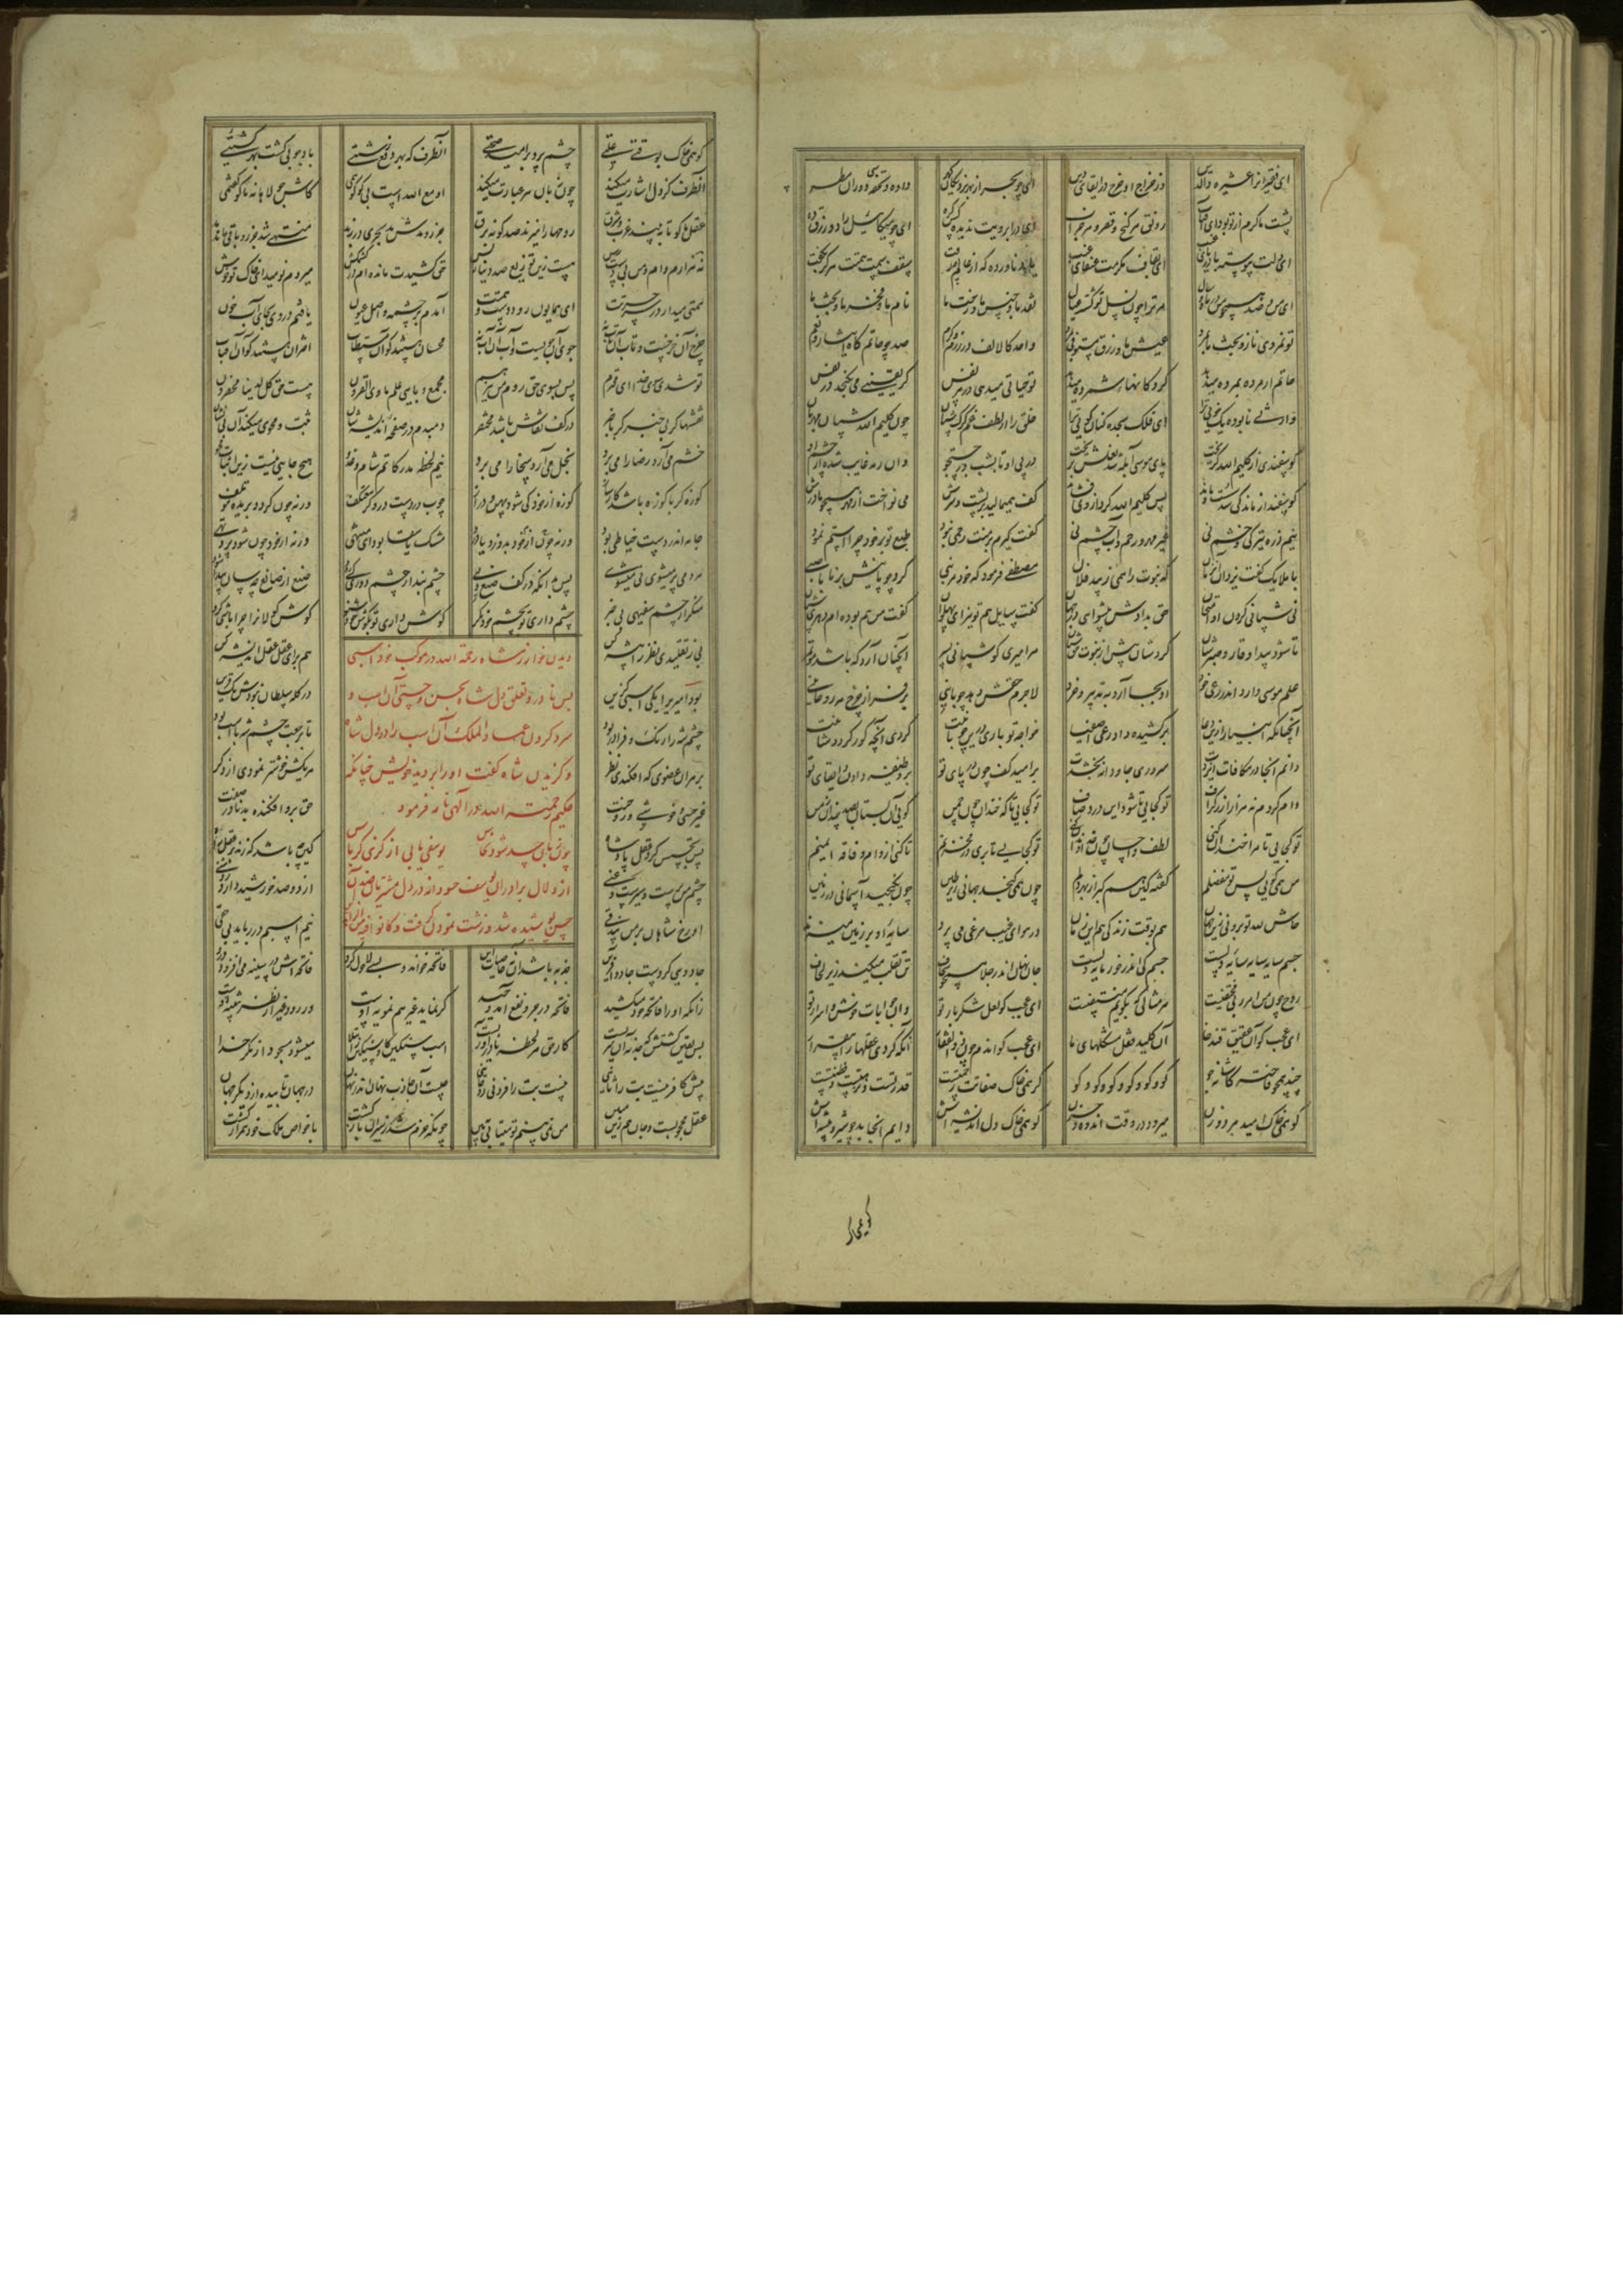 ای فقیرانرا عشیره والدین در خراج و خرج و در ایفای دین ای چو بحر از بهر نزدیکان گهر داده و تحفه دوران مطر
پشت ما گرم از تو بود ای آفتاب رونق هر گنج و قصر و هر خراب ای در ابرویت ندیده کس گره ای چو میکائیل راد و رزق ده
ای دلت پیوسته با دریای غیب ای بقاف مکرمت عنقای غیب یاد ناورده که از مالم چه رفت سقف همت هرگز نکفت
ای من و صد همچو من در ماه و سال مر ترا چون نسل تو گشته عیال نقد ما و جنس ما و رخت ما نام ما و فخر ما و بخت ما
تو نمردی ناز و بخت ما بمرد عیش ما و رزق مستوفی بمرد واحد کالالف در رزم و کرم صد چو حاتم گاه ایثار نعم
حاتم ار مرده بمرده میدهد گردکانهای شمرده میدهد تو حیاتی میدهی در هر نفس کز نفیسی می نگنجد در نفس
وارثی نا بوده یک خوی ترا ای فلک سجده کنان کوی ترا خلق را از گرگ غم لطفت شبان چون کلیم الله شبان مهربان
گوسفندی از کلیم الله گریخت پای موسی آبله شد نعل ریخت در پی او تا بشب در جست و جو وان رمه غایب شده از چشم او
گوسفند از ماندگی شد سست و ماند پس کلیم الله گرد از وی فشاند کف همی مالید بر پشت و سرش می نواخت از مهر همچو مادرش
نیم ذره تیرگی و خشم نی غیر مهر و رحم و آب چشم نی گفت گیرم بر منت رحمی نبود طبع تو بر خود چرا استم نمود
با ملایک گفت یزدان آن زمان که نبوت را همی زیبد فلان مصطفی فرمود که خود هر نبی کرد چوپانیش برنا یا صبی
بی شبانی کردن و آن امتحان حق ندادش پیشوایی جهان گفت سایل هم تو نیز ای پهلوان گفت من هم بوده ام دهری شبان
تا شود پیدا وقار و صبرشان کردشان پیش از نبوت حق شبان هر امیری کو شبانی بشر آنچنان آرد که باشد مؤتمر
حلم موسی دارد اندر رعی خود او بجا آرد بتدبیر و خرد لاجرم حقش دهد چوپانیی بر فراز چرخ مه روحانیی
آنچنانکه انبیا را زین رعا برکشید و داد رعی اصفیا خواجه تو باری درین چوپانیت کردی آنچه کور گردد شانیت
دانم آنجا در مکافات ایزدت سروری جاودانه بخشدت بر امید کف چون دریای تو بر وظیفه دادن و ایفای تو
وام کردم نه هزار از زر گزاف تو کجایی تا شود این درد صاف تو کجایی تا که خندان چون چمن گویی آن بستان صد چندان ز من
تو کجایی تا مرا خندان کنی لطف و احسان چون خداوندان کنی تو کجایی تا بری در مخزنم تا کنی از وام و فاقه ایمنم
من همی گویم بس تو مفضلم گفته کین هم گیر از بهر دلم چون همی گنجد جهانی زیر طین چون بگنجد آسمانی در زمین
حاش لله تو برونی زین جهان هم بوقت زندگی هم این زمان در هوای غیب مرغی می پرد سایه او بر زمین میزند
جسم سایه سایه سایه دلست جسم کی اندر خور پایه دلست جان نهان اندر خلا همچو سجاف تن تقلب میکند زیر لحاف
روح چون من امر ربی مختفیست هر مثالی که بگویم منتفیست ای عجب کو لعل شکربار تو وان جوابات خوش و اسرار تو
ای عجب کو آن عقیق قندخا آن کلید قفل مشکلهای ما ای عجب کو آن دم چون ذوالفقار آنکه کردی عقلها را بیقرار
چند همچو فاخته کاشانه جو کو و کو و کو و کو و کو و کو کو همان جا که صفات رحمتست قدرتست و نزهتست و فطنتست
کو همانجا که امید مرد و زن میرود در وقت اندوه و حزن کو همانجا که دل و اندیشه اش دایم آنجا بد چو شیر و بیشه اش
کو همانجا که بوقت علتی چشم پرد بر امید صحتی آنطرف که بهر دفع زشتیی باد جویی کشت بهر کشتیی
آنطرف که دل اشارت میکند چون زبان یا هو عبارت میکند او مع الله است بی کو کو همی کاش جولاهانه ما کو گفتمی
عقل ما کو تا ببیند غرب و شرق روحها را میزند صد گونه برق جزر و مدش بد ببحری در زبد منتهی شد جزر و باقی ماند مد
نه هزارم وام و من بی دسترس هست صد دینار ازین توزیع و بس حق کشیدت ماندم در کشمکش میروم نومید ای خاک تو خوش
همتی میدار در پر حسرتت ای همایون روی و دست و همتت آمدم بر چشمه و اصل عیون یافتم در وی بجای آب خون
چرخ آن چرخست آن مهتاب نیست جوی آن جویست آب آن آب نیست محسنان هستند کو آن مستطاب اختران هستند کو آن آفتاب
تو شدی سوی خدا ای محترم پس بسوی حق روم من نیز هم مجمع و پای علم ماوی القرون هست حق کل لدینا محضرون
نقشها گر بی خبر گر با خبر در کف نقاش باشد محتضر دمبدم در صفحه اندیشه شان ثبت و محوی میکند آن بی نشان
خشم می آرد رضا را می برد بخل می آرد سخا را می برد نیم لحظه مدرکاتم شام و غدو هیچ خالی نیست زین اثبات و محو
کوزه گر با کوزه باشد کارساز کوزه از خود کی شود پهن و دراز چوب در دست دروگر معتکف ورنه چون گردد بریده و مؤتلف
جامه اندر دست خیاطی بود ورنه چون از خود بدوزد یا درد مشک با سقا بود ای منتهی ورنه از خود چون شود پر یا تهی
هر دمی پر میشوی تی میشوی پس بدانکه در کف صنع ویی چشم بند از چشم روزی کی رود صنع از صانع چه سان شیدا شود
چشم داری تو بچشم خود نگر منگر از چشم سفیهی بی خبر گوش داری تو بگوش خود شنو گوش گولان را چرا باشی گرو
بی ز تقلیدی نظر را پیشه کن هم برای عقل خود اندیشه کن
دیدن خوارزمشاه رحمه الله در موکب خود اسبی
بس نادر و تعلق دل شاه بحسن و چستی آن اسب و
سرد کردن عماد الملک آن اسب را در دل شاه
و گزیدن شاه گفت او را بر دید خویش چنانکه
حکیم رحمة الله در الهی نامه فرمود
چون زبان حسد شود نخاس یوسفی یابی از گزی کرباس
از دلالی برادران یوسف حسودانه در دل مشتریان آن
حسن پوشیده شد و زشت نمودن گرفت و کانوا فیه من الزاهدین
بود امیری را یکی اسبی گزین در گله سلطان نبودش یک قرین
چشم شه را رنگ و فر او ربود تا برجعت چشم شه با اسب بود
بر هر آن عضوی که افکندی نظر هر یکش خوشتر نمودی زان دگر
غیر چستی و خوشی و روحنت حق برو افکنده بد نادر صفت
پس تجسس کرد عقل پادشاه کین چه باشد که زند بر عقل راه
چشم من پرست و سیرست و غنی از دو صد خورشید دارد روشنی
ای رخ شاهان بر من بیذقی نیم اسبم در رباید بی حقی
جادوی کردست جادو آفرین جذبه باشد آن نه خاصیات این فاتحه خواند و بسی لا حول کرد فاتحه اش در سینه می افزود درد
زانکه او را فاتحه خود میکشید فاتحه در جر و دفع آمد وحید گر نماید غیر هم تمویه اوست ور رود غیر از نظر تنبیه اوست
پس یقین گشتش که جذبه زان سریست کار حق هر لحظه نادر آوریست اسب سنگین گاو سنگین ز ابتلا میشود مسجود از مکر خدا
پیش کافر نیست بت را ثانیی نیست بت را فر و نی روحانیی چیست آن جاذب نهان اندر نهان در جهان تابیده از دیگر جهان
عقل محجوبست و جان هم زین کمین من نمی بینم تو میتانی ببین چونکه خوارمشه ز سیران باز گشت با خواص ملک خود همراز گشت